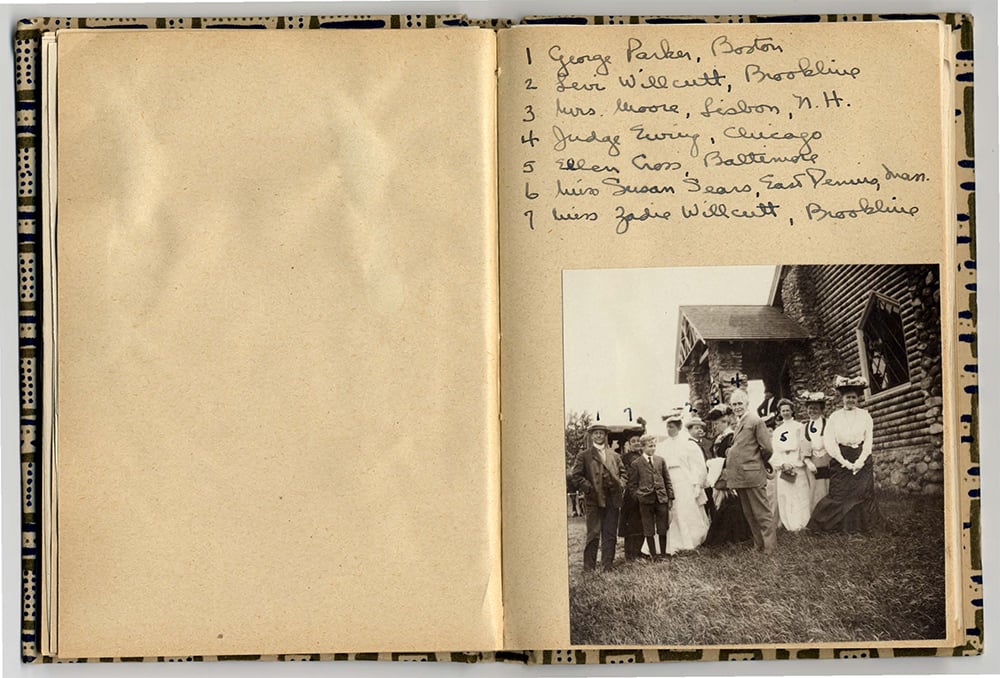 1 George Parker, Boston
2 Levi Willcutt, Brookline
3 Mrs. Moore, Lisbon, N.H.
4 Judge Ewing, Chicago
5 Ellen Cross, Baltimore
6 Miss Susan Sears, East Dennis, Mass.
7 Miss Zadie Willcutt, Brookline
1 7 2 3 4 5 6